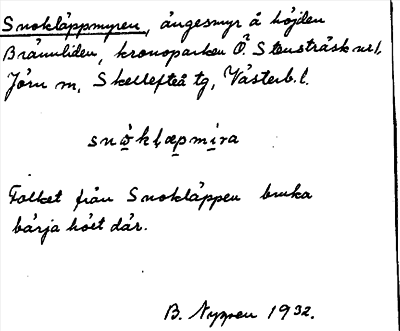 Snokläppmyren, ängesmyr å höjden
Brännliden, kronoparken Ö. Stensträsk nr 1,
Jörn sn, Skellefteå tg, Västerb. l.
snò̱kḷæpmi̱ra
Folket från Snokläppen bruka
bärja höet där.
B. Nyppen 1932.